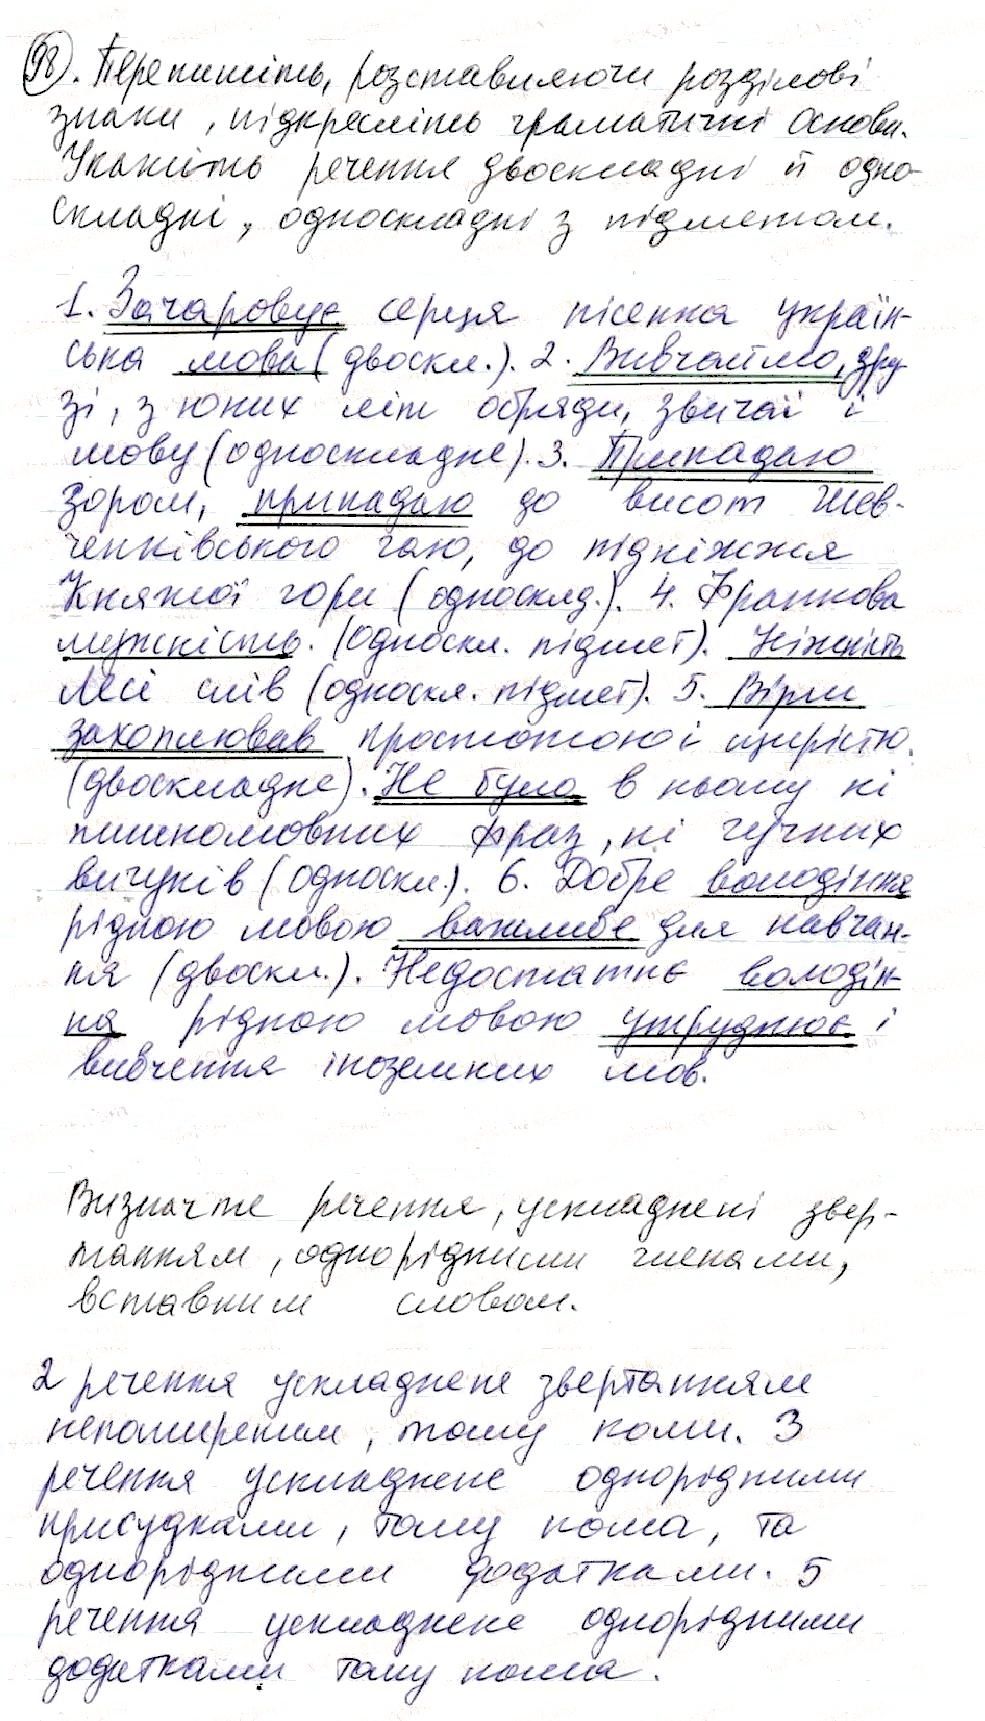 98. Перепишіть, розставляючи розділові
знаки, підкресліть граматичні основи.
Укажіть речення двоскладні й одно-
складні, односкладні з підметом.
1. Зачаровує серця пісенна україн-
ська мова (двоскл.). 2. Вивчаймо, дру-
зі, з юних літ обряди, звичаї і
мову (односкладне). 3. Припадаю
зором, припадаю до висот Шев-
ченківського гаю, до підніжжя
Княжої гори (односклд.). 4. Франкова
мужність. (односкл. підмет). Ніжність
Лесі слів (односкл. підмет). 5. Вірш
захоплював простотою і щирістю.
(двоскладне). Не було в ньому ні
пишномовних фраз, ні гучних
вигуків (односкл.). 6. Добре володіння
рідною мовою важливе для навчан-
ня (двоскл.). Недостатнє володін-
ня рідною мовою утруднює і
вивчення іноземних мов.
Визначте речення, ускладнені звер-
танням, однорідними членами,
вставним словом.
2 речення ускладнене звертанням
непоширеним, тому коми. 3
речення ускладнене однорідними
присудками, тому кома, та
однорідними додатками. 5
речення ускладнене однорідними
додатками тому кома.